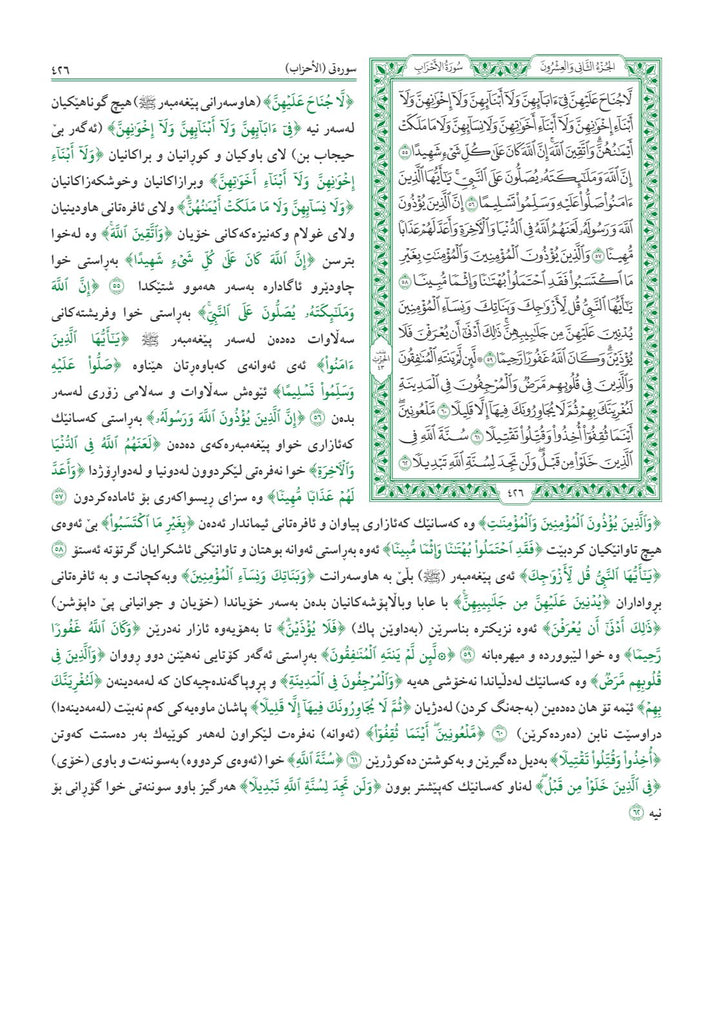 سورەتی (الأحزاب)
٤٢٦
الجُزءُ الثَّانِي وَالعِشْرُونَ
سُورَةُ الأَحْزَابِ
لَّا جُنَاحَ عَلَيْهِنَّ فِيٓ ءَابَآئِهِنَّ وَلَآ أَبْنَآئِهِنَّ وَلَآ إِخْوَٰنِهِنَّ وَلَآ
أَبْنَآءِ إِخْوَٰنِهِنَّ وَلَآ أَبْنَآءِ أَخَوَٰتِهِنَّ وَلَا نِسَآئِهِنَّ وَلَا مَا مَلَكَتْ
أَيْمَٰنُهُنَّۗ وَٱتَّقِينَ ٱللَّهَۚ إِنَّ ٱللَّهَ كَانَ عَلَىٰ كُلِّ شَىْءٍ شَهِيدًا ٥٥
إِنَّ ٱللَّهَ وَمَلَٰٓئِكَتَهُۥ يُصَلُّونَ عَلَى ٱلنَّبِيِّۚ يَٰٓأَيُّهَا ٱلَّذِينَ
ءَامَنُوا۟ صَلُّوا۟ عَلَيْهِ وَسَلِّمُوا۟ تَسْلِيمًا ٥٦ إِنَّ ٱلَّذِينَ يُؤْذُونَ
ٱللَّهَ وَرَسُولَهُۥ لَعَنَهُمُ ٱللَّهُ فِي ٱلدُّنْيَا وَٱلْءَاخِرَةِ وَأَعَدَّ لَهُمْ عَذَابًا
مُّهِينًا ٥٧ وَٱلَّذِينَ يُؤْذُونَ ٱلْمُؤْمِنِينَ وَٱلْمُؤْمِنَٰتِ بِغَيْرِ
مَا ٱكْتَسَبُوا۟ فَقَدِ ٱحْتَمَلُوا۟ بُهْتَٰنًا وَإِثْمًا مُّبِينًا ٥٨
يَٰٓأَيُّهَا ٱلنَّبِيُّ قُل لِّأَزْوَٰجِكَ وَبَنَاتِكَ وَنِسَآءِ ٱلْمُؤْمِنِينَ
يُدْنِينَ عَلَيْهِنَّ مِن جَلَٰبِيبِهِنَّۚ ذَٰلِكَ أَدْنَىٰٓ أَن يُعْرَفْنَ فَلَا
يُؤْذَيْنَۗ وَكَانَ ٱللَّهُ غَفُورًا رَّحِيمًا ٥٩ ۞ لَّئِن لَّمْ يَنتَهِ ٱلْمُنَٰفِقُونَ
وَٱلَّذِينَ فِي قُلُوبِهِم مَّرَضٌ وَٱلْمُرْجِفُونَ فِي ٱلْمَدِينَةِ
لَنُغْرِيَنَّكَ بِهِمْ ثُمَّ لَا يُجَاوِرُونَكَ فِيهَآ إِلَّا قَلِيلًا ٦٠ مَّلْعُونِينَۖ
أَيْنَمَا ثُقِفُوٓا۟ أُخِذُوا۟ وَقُتِّلُوا۟ تَقْتِيلًا ٦١ سُنَّةَ ٱللَّهِ فِي
ٱلَّذِينَ خَلَوْا۟ مِن قَبْلُۖ وَلَن تَجِدَ لِسُنَّةِ ٱللَّهِ تَبْدِيلًا ٦٢
٤٢٦
الحزب ٤٣
﴿لَّا جُنَاحَ عَلَيْهِنَّ﴾ (هاوسەرانی پێغەمبەر ﷺ) هیچ گوناهێکیان
لەسەر نیە ﴿فِيٓ ءَابَآئِهِنَّ وَلَآ أَبْنَآئِهِنَّ وَلَآ إِخْوَٰنِهِنَّ﴾ (ئەگەر بێ
حیجاب بن) لای باوکیان و کوڕانیان و براکانیان ﴿وَلَآ أَبْنَآءِ
إِخْوَٰنِهِنَّ وَلَآ أَبْنَآءِ أَخَوَٰتِهِنَّ﴾ وبرازاکانیان وخوشکەزاکانیان
﴿وَلَا نِسَآئِهِنَّ وَلَا مَا مَلَكَتْ أَيْمَٰنُهُنَّۗ﴾ ولای ئافرەتانی هاودینیان
ولای غولام وکەنیزەکەکانی خۆیان ﴿وَٱتَّقِينَ ٱللَّهَۚ﴾ وە لەخوا
بترسن ﴿إِنَّ ٱللَّهَ كَانَ عَلَىٰ كُلِّ شَىْءٍ شَهِيدًا﴾ بەڕاستی خوا
چاودێرو ئاگادارە بەسەر هەموو شتێکدا ٥٥ ﴿إِنَّ ٱللَّهَ
وَمَلَٰٓئِكَتَهُۥ يُصَلُّونَ عَلَى ٱلنَّبِيِّۚ﴾ بەڕاستی خوا وفریشتەکانی
سەڵاوات دەدەن لەسەر پێغەمبەر ﷺ ﴿يَٰٓأَيُّهَا ٱلَّذِينَ
ءَامَنُوا۟﴾ ئەی ئەوانەی کەباوەڕتان هێناوە ﴿صَلُّوا۟ عَلَيْهِ
وَسَلِّمُوا۟ تَسْلِيمًا﴾ ئێوەش سەڵاوات و سەلامی زۆری لەسەر
بدەن ٥٦ ﴿إِنَّ ٱلَّذِينَ يُؤْذُونَ ٱللَّهَ وَرَسُولَهُۥ﴾ بەڕاستی کەسانێك
کەئازاری خواو پێغەمبەرەکەی دەدەن ﴿لَعَنَهُمُ ٱللَّهُ فِي ٱلدُّنْيَا
وَٱلْءَاخِرَةِ﴾ خوا نەفرەتی لێکردوون لەدونیا و لەدواڕۆژدا ﴿وَأَعَدَّ
لَهُمْ عَذَابًا مُّهِينًا﴾ وە سزای ڕیسواکەری بۆ ئامادەکردون ٥٧
﴿وَٱلَّذِينَ يُؤْذُونَ ٱلْمُؤْمِنِينَ وَٱلْمُؤْمِنَٰتِ﴾ وە کەسانێك کەئازاری پیاوان و ئافرەتانی ئیماندار ئەدەن ﴿بِغَيْرِ مَا ٱكْتَسَبُوا۟﴾ بێ ئەوەی
هیچ تاوانێکیان کردبێت ﴿فَقَدِ ٱحْتَمَلُوا۟ بُهْتَٰنًا وَإِثْمًا مُّبِينًا﴾ ئەوە بەڕاستی ئەوانە بوهتان و تاوانێکی ئاشکرایان گرتۆتە ئەستۆ ٥٨
﴿يَٰٓأَيُّهَا ٱلنَّبِيُّ قُل لِّأَزْوَٰجِكَ﴾ ئەی پێغەمبەر (ﷺ) بڵێ بە هاوسەرانت ﴿وَبَنَاتِكَ وَنِسَآءِ ٱلْمُؤْمِنِينَ﴾ وبەکچانت و بە ئافرەتانی
بڕواداران ﴿يُدْنِينَ عَلَيْهِنَّ مِن جَلَٰبِيبِهِنَّۚ﴾ با عابا وباڵاپۆشەکانیان بدەن بەسەر خۆیاندا (خۆیان و جوانیانی پێ داپۆشن)
﴿ذَٰلِكَ أَدْنَىٰٓ أَن يُعْرَفْنَ﴾ ئەوە نزیکترە بناسرێن (بەداوێن پاك) ﴿فَلَا يُؤْذَيْنَۗ﴾ تا بەهۆیەوە ئازار نەدرێن ﴿وَكَانَ ٱللَّهُ غَفُورًا
رَّحِيمًا﴾ وە خوا لێبووردە و میهرەبانە ٥٩ ﴿۞لَّئِن لَّمْ يَنتَهِ ٱلْمُنَٰفِقُونَ﴾ بەڕاستی ئەگەر کۆتایی نەهێنن دوو ڕووان ﴿وَٱلَّذِينَ فِي
قُلُوبِهِم مَّرَضٌ﴾ وە کەسانێك لەدڵیاندا نەخۆشی هەیە ﴿وَٱلْمُرْجِفُونَ فِي ٱلْمَدِينَةِ﴾ و پڕوپاگەندەچیەکان کە لەمەدینەن ﴿لَنُغْرِيَنَّكَ
بِهِمْ﴾ ئێمە تۆ هان دەدەین (بەجەنگ کردن) لەدژیان ﴿ثُمَّ لَا يُجَاوِرُونَكَ فِيهَآ إِلَّا قَلِيلًا﴾ پاشان ماوەیەکی کەم نەبێت (لەمەدینەدا)
دراوسێت نابن (دەردەکرێن) ٦٠ ﴿مَّلْعُونِينَۖ أَيْنَمَا ثُقِفُوٓا۟﴾ (ئەوانە) نەفرەت لێکراون لەهەر کوێیەك بەر دەستت کەوتن
﴿أُخِذُوا۟ وَقُتِّلُوا۟ تَقْتِيلًا﴾ بەدیل دەگیرێن و بەکوشتن دەکوژرێن ٦١ ﴿سُنَّةَ ٱللَّهِ﴾ خوا (ئەوەی کردووە) بەسوننەت و باوی (خۆی)
﴿فِي ٱلَّذِينَ خَلَوْا۟ مِن قَبْلُۖ﴾ لەناو کەسانێك کەپێشتر بوون ﴿وَلَن تَجِدَ لِسُنَّةِ ٱللَّهِ تَبْدِيلًا﴾ هەرگیز باوو سوننەتی خوا گۆڕانی بۆ
نیە ٦٢